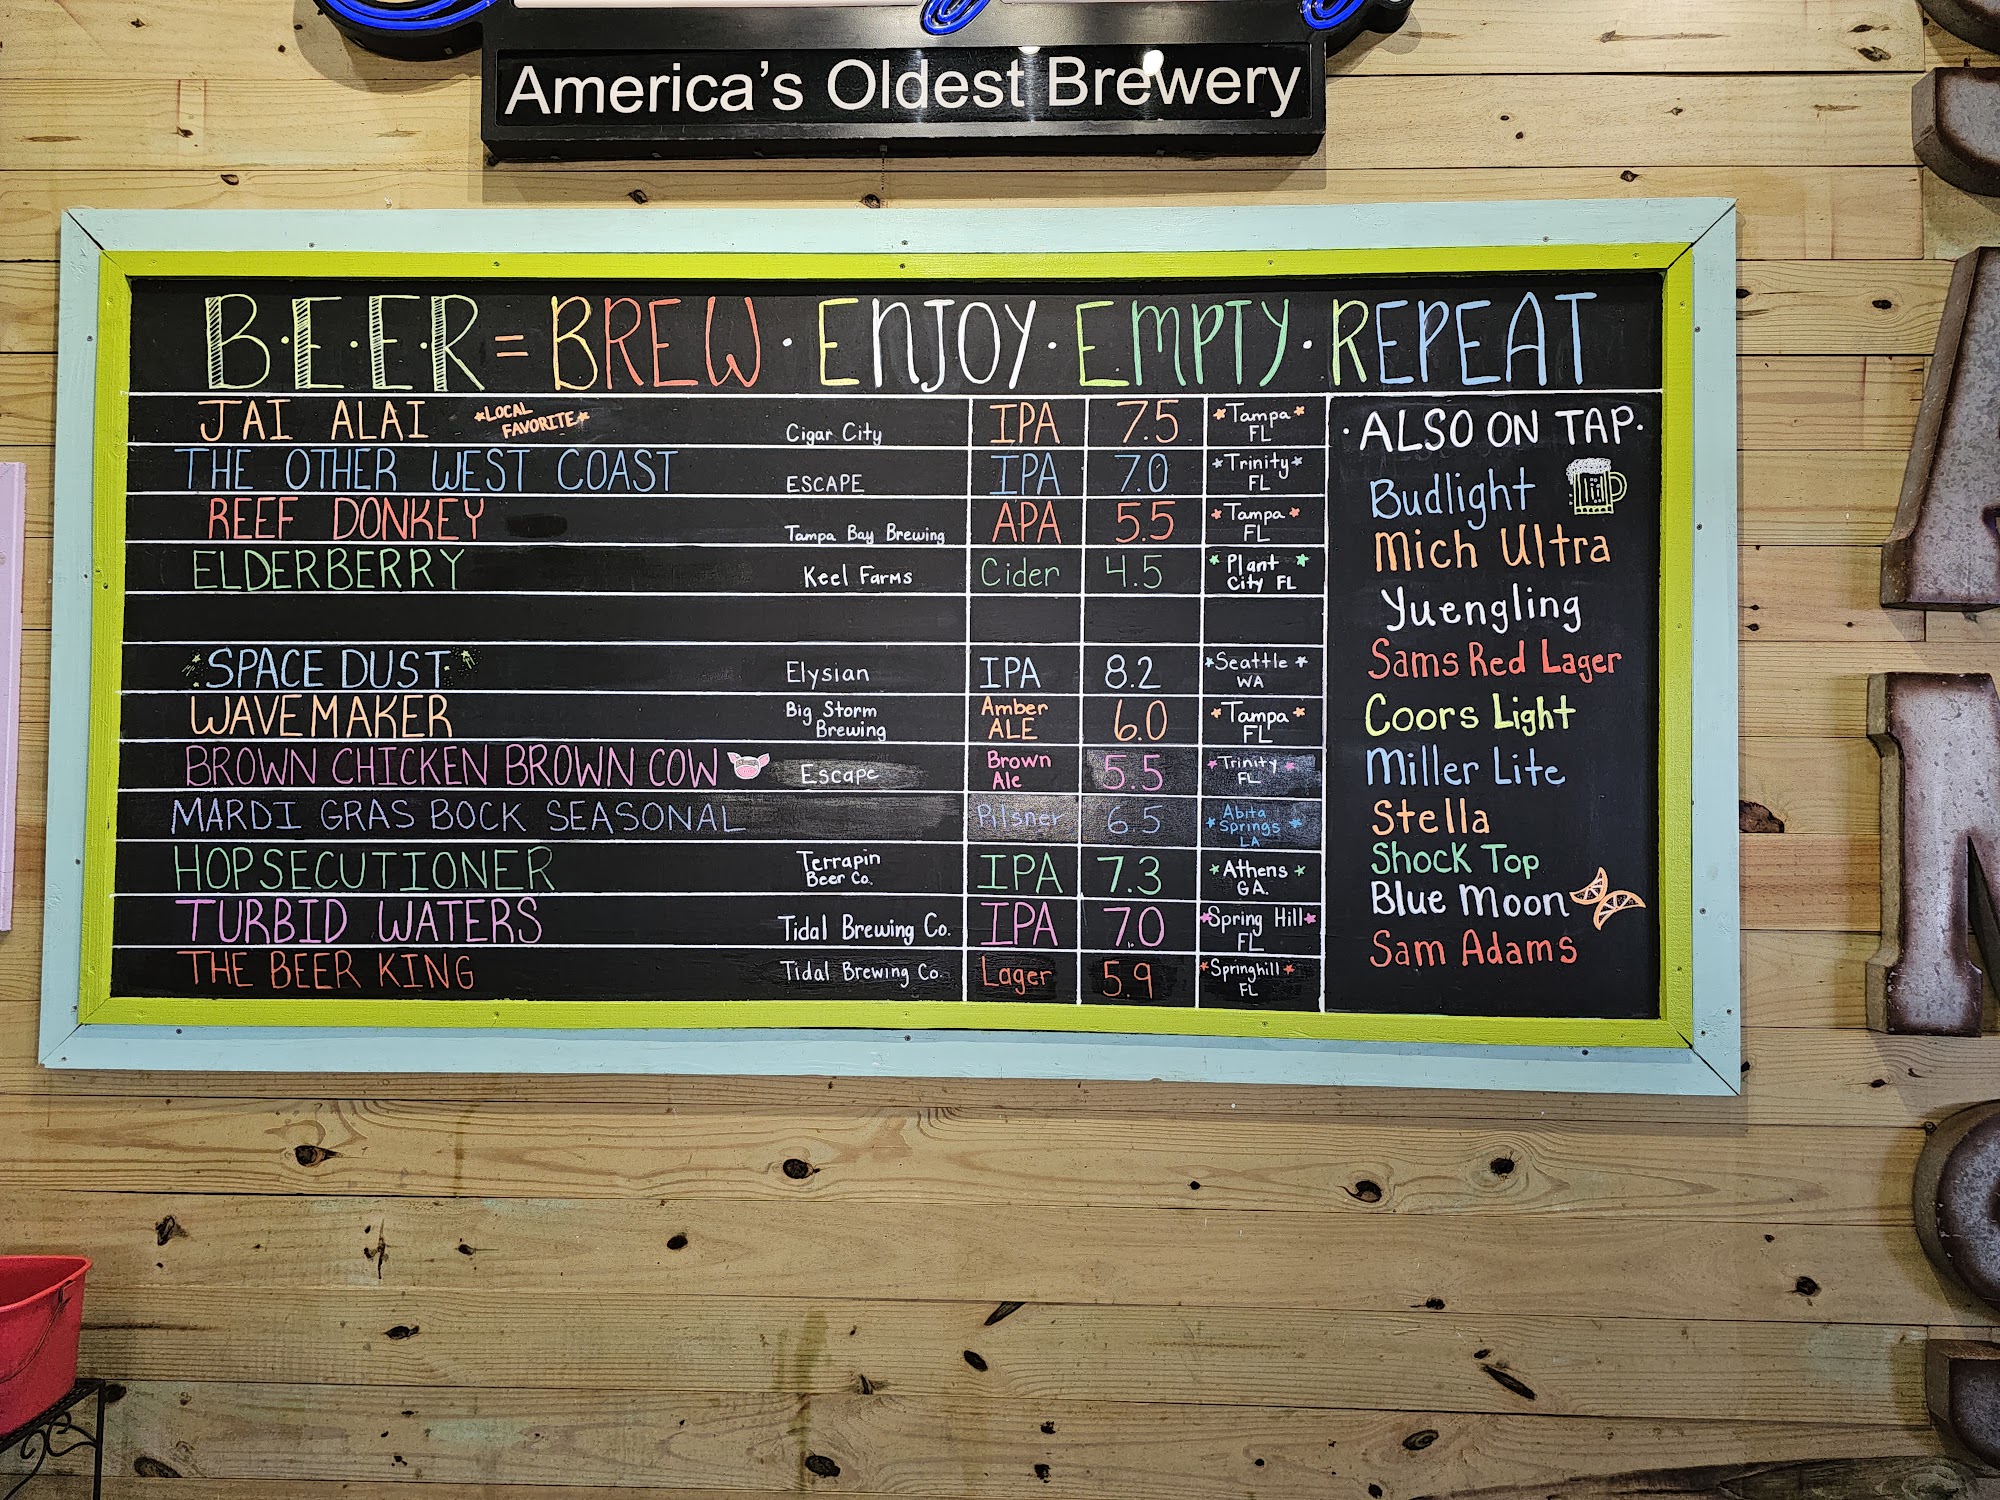 America's Oldest Brewery
B·E·E·R = BREW · ENJOY · EMPTY · REPEAT
JAI ALAI *LOCAL FAVORITE* Cigar City IPA 7.5 *Tampa* FL
THE OTHER WEST COAST ESCAPE IPA 7.0 *Trinity* FL
REEF DONKEY Tampa Bay Brewing APA 5.5 *Tampa* FL
ELDERBERRY Keel Farms Cider 4.5 *Plant* City FL
SPACE DUST Elysian IPA 8.2 *Seattle* WA
WAVEMAKER Big Storm Brewing Amber ALE 6.0 *Tampa* FL
BROWN CHICKEN BROWN COW Escape Brown Ale 5.5 *Trinity* FL
MARDI GRAS BOCK SEASONAL Pilsner 6.5 Abita *Springs* LA
HOPSECUTIONER Terrapin Beer Co. IPA 7.3 *Athens* GA.
TURBID WATERS Tidal Brewing Co. IPA 7.0 *Spring Hill* FL
THE BEER KING Tidal Brewing Co. Lager 5.9 *Springhill* FL
·ALSO ON TAP·
Budlight
Mich Ultra
Yuengling
Sams Red Lager
Coors Light
Miller Lite
Stella
Shock Top
Blue Moon
Sam Adams